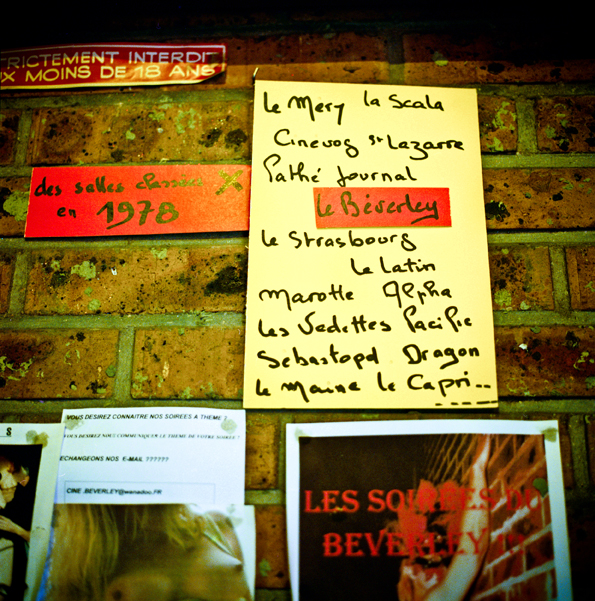 TRICTEMENT INTERDIT
UX MOINS DE 18 ANS
des salles classées X
en 1978
le Mery la Scala
Cinevog St Lazarre
Pathé Journal
le Béverley
le Strasbourg
le Latin
Marotte Alpha
les Vedettes Pacific
Sebastopol Dragon
le Maine le Capri...
S
VOUS DESIREZ CONNAITRE NOS SOIREES A THEME ?
VOUS DESIREZ NOUS COMMUNIQUER LE THEME DE VOTRE SOIREE !
ECHANGEONS NOS E-MAIL ??????
CINE.BEVERLEY@wanadoo.FR
LES SOIREES DU
BEVERLEY